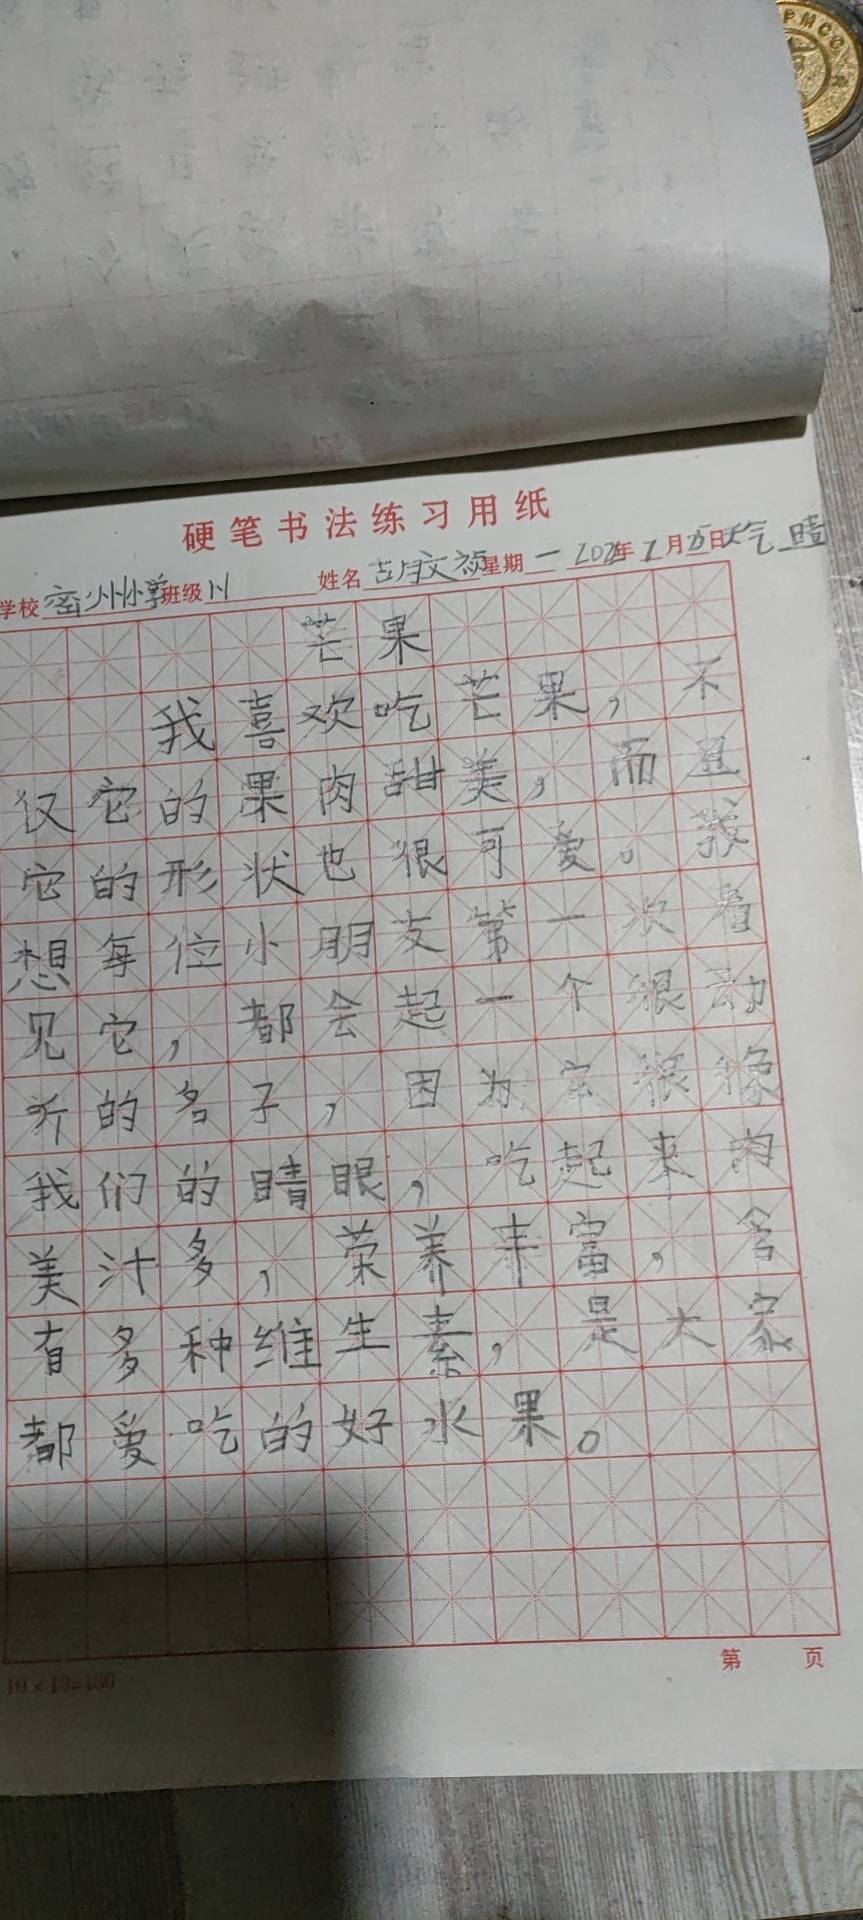 硬笔书法练习用纸
学校 密州小学 班级 姓名 胡文祯 星期一 年 月 日 天气 晴
芒果
我喜欢吃芒果，不
仅它的果肉甜美，而且
它的形状也很可爱。我
想每位小朋友第一次看
见它，都会起一个很动
听的名子，因为它很像
我们的睛眼，吃起来肉
美汁多，荣养丰富，含
有多种维生素，是大家
都爱吃的好水果。
第 页
10×13=130